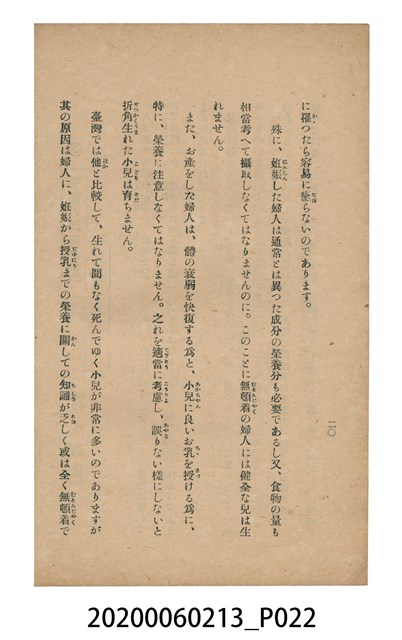 に罹つたら容易に癒らないのであります。
殊に、姙娠した婦人は通常とは異つた成分の榮養分も必要であるし又、食物の量も
相當考へて攝取しなくてはなりませんのに。このことに無頓着の婦人には健全な兒は生
れません。
また、お産をした婦人は、體の衰弱を快復する爲と、小兒に良いお乳を授ける爲に、
特に、榮養に注意しなくてはなりません。之れを適當に考慮し、誤りない樣にしないと
折角生れた小兒は育ちません。
臺灣では他と比較して、生れて間もなく死んでゆく小兒が非常に多いのでありますが
其の原因は婦人に、姙娠から授乳までの榮養に關しての知識が乏しく或は全く無頓着で
二〇
20200060213_P022